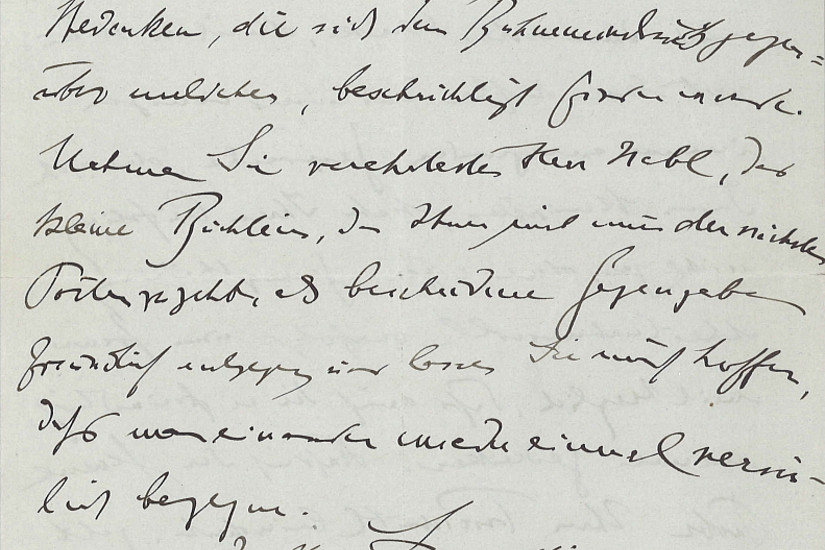 Bedenken, die sich dem Bühneneindruck gegen=
über welchen, beschwichtigt finden werde.
Nehmen Sie verehrtester Herr Nabl, das
kleine Büchlein, das Ihnen mit mir der nächsten
Post zugeht, als bescheidene Gegengabe
freundlich entgegen und lassen Sie mich hoffen,
daß man einander wieder einmal persön-
lich begegne.